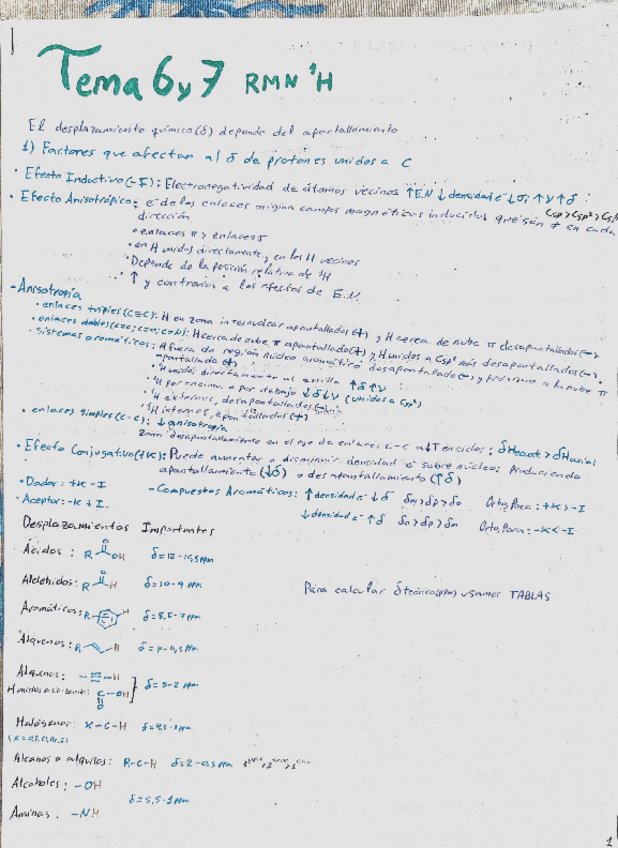 Tema 6 y 7 RMN ¹H
El desplazamiento químico (δ) depende del apantallamiento
1) Factores que afectan al δ de protones unidos a C
· Efecto Inductivo (-I): Electronegatividad de átomos vecinos ↑E.N ↓ densidad e⁻ ↓σ; ↑ν ↑δ
· Efecto Anisotrópico: e⁻ de los enlaces origina campos magnéticos inducidos que son ≠ en cada
Csp > Csp² > Csp³
dirección
· enlaces π > enlaces σ
· en H unidos directamente y en los H vecinos
· Depende de la posición relativa de ¹H
· ↑ y contrarios a los efectos de E.N.
- Anisotropía
· enlaces triples (C≡C): H en zona internuclear apantallados (+) y H cerca de nube π desapantallados (-)
· enlaces dobles (C=C; C=O; C=N): H cerca de nube π apantallado (+) y H unidos a Csp² más desapantallados (-)
· Sistemas aromáticos: H fuera de región núcleo aromático desapantallado (-) y próximo a la nube π
apantallado (+)
· H unidos directamente al anillo ↑δ ↑ν
· H por encima o por debajo ↓δ ↓ν (unidos a Csp³)
· H externos, desapantallados (-)
· H internos, apantallados (+)
· enlaces simples (C-C): ↓ anisotropía
Zona desapantallamiento en el eje de enlaces C-C
δHecuat > δHaxial
· Efecto Conjugativo (±K): Puede aumentar o disminuir densidad e⁻ sobre núcleos produciendo
apantallamiento (↓δ) o desapantallamiento (↑δ)
· Dador: +K -I
· Aceptor: -K +I.
- Compuestos Aromáticos: ↑ densidad e⁻ ↓δ δm > δp > δo Orto, Para: +K > -I
↓ densidad e⁻ ↑δ δo > δp > δm Orto, Para: -K < -I
Desplazamientos Importantes
Ácidos: R O OH δ = 12 - 10,5 ppm
Aldehidos: R O H δ = 10 - 9 ppm
Para calcular δ teórico (ppm) usamos TABLAS
Aromáticos: R H δ = 8,5 - 7 ppm
Alquenos: R H δ = 7 - 4,5 ppm
Alquinos: - ≡ - H
H unidos a carbonilo: C - OH O
δ = 3 - 2 ppm
Halógenos: X - C - H
Alcanos o alquilos: R-C-H δ = 2 - 0,5 ppm
Alcoholes: -OH
δ = 5,5 - 1 ppm
Aminas: -NH
1